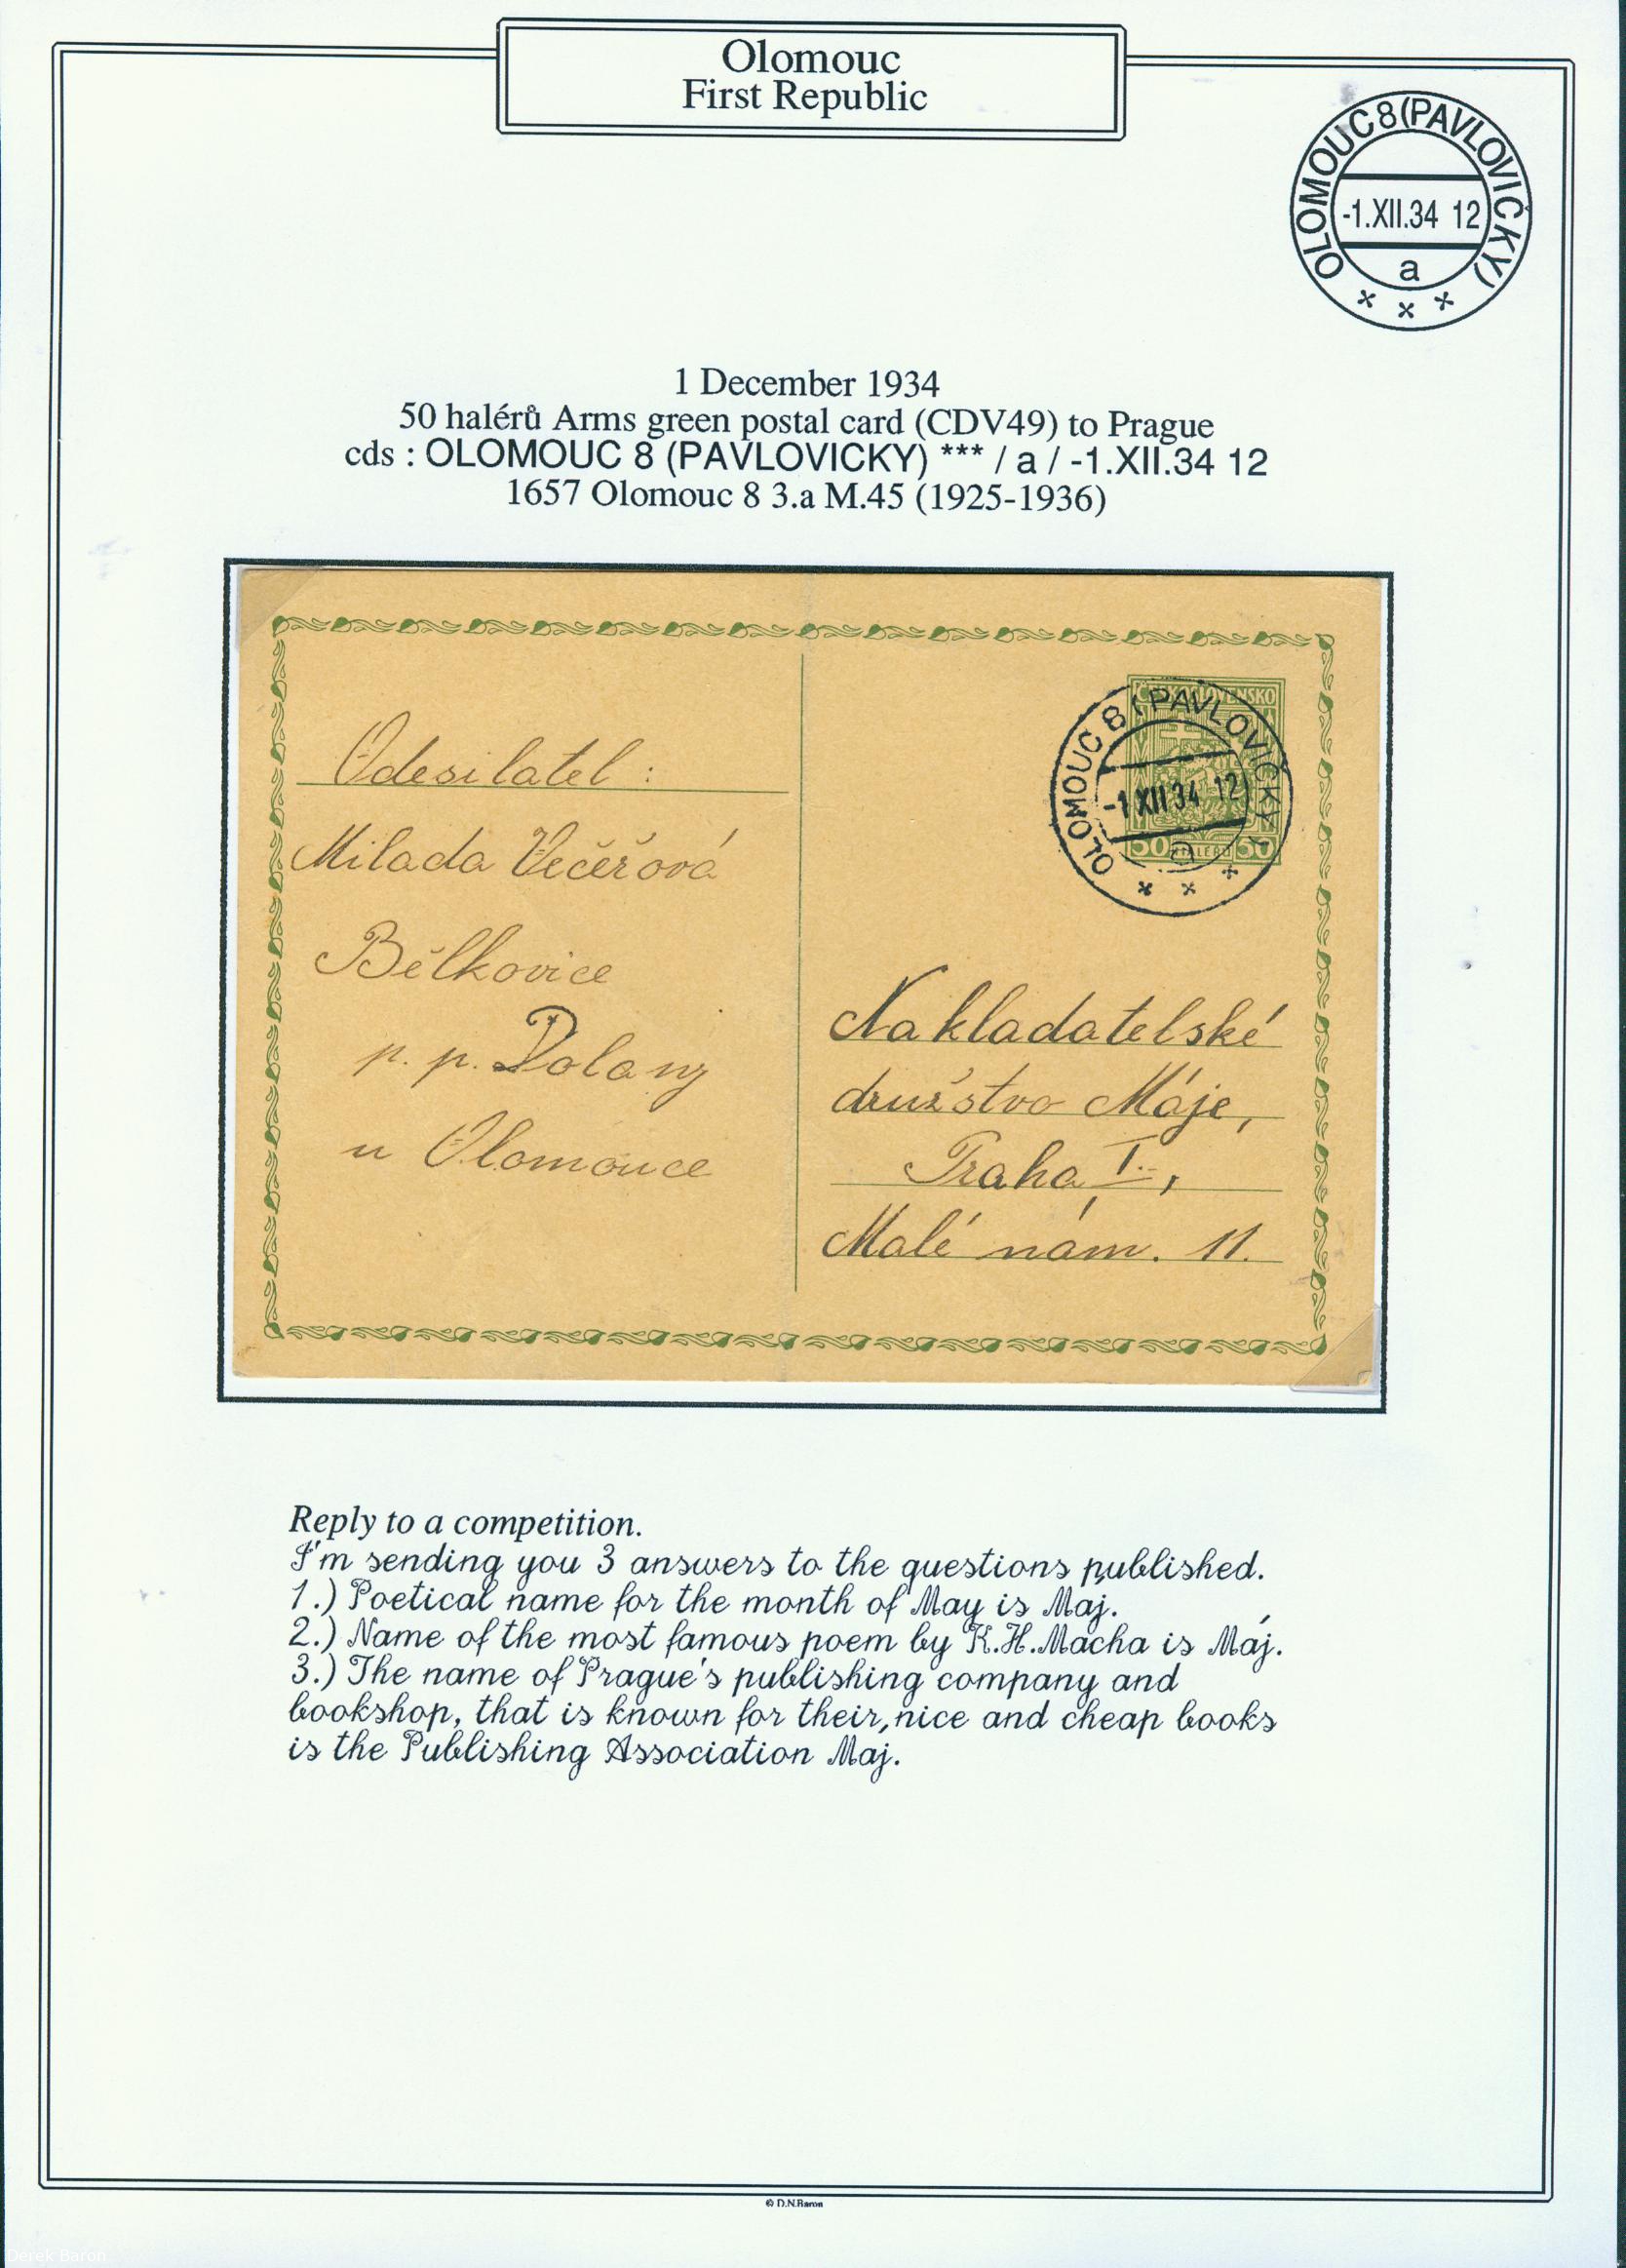 Olomouc
First Republic
OLOMOUC 8 (PAVLOVICKY)
-1.XII.34 12
a
1 December 1934
50 halérů Arms green postal card (CDV49) to Prague
cds : OLOMOUC 8 (PAVLOVICKY) *** / a / -1.XII.34 12
1657 Olomouc 8 3.a M.45 (1925-1936)
ČESKOSLOVENSKO
50 HALÉŘŮ 50
OLOMOUC 8 (PAVLOVIČKY)
-1.XII.34 12
a
Odesilatel :
Milada Večeřová
Bělkovice
p. p. Dolany
u Olomouce
Nakladatelské
družstvo Máje,
Praha I.,
Malé nám. 11.
Reply to a competition.
I'm sending you 3 answers to the questions published.
1.) Poetical name for the month of May is Maj.
2.) Name of the most famous poem by K.H.Macha is Máj.
3.) The name of Prague's publishing company and
bookshop, that is known for their, nice and cheap books
is the Publishing Association Maj.
© D.N.Baron
Derek Baron